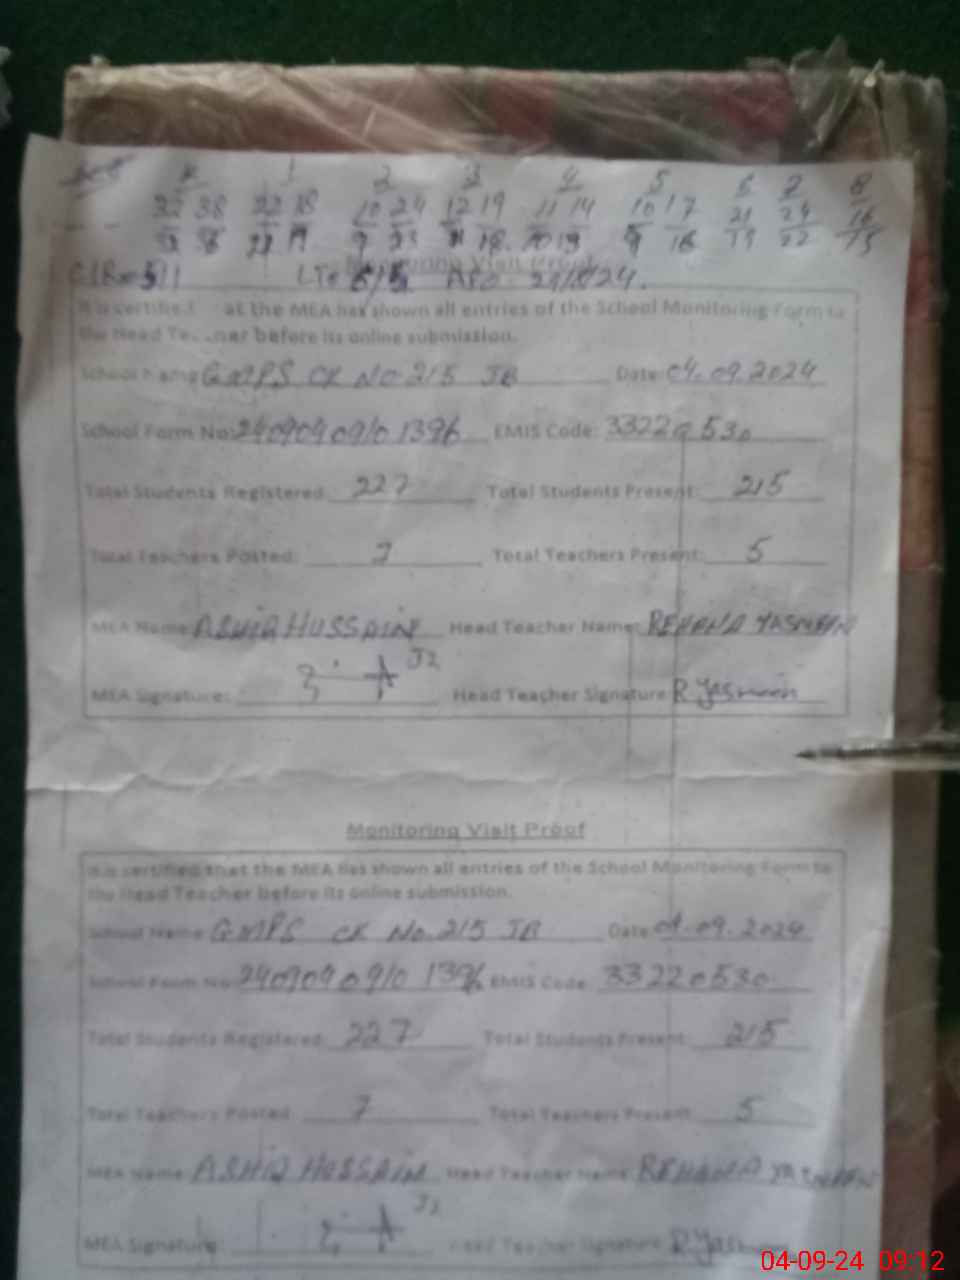 K 1 2 3 4 5 6 7 8
32 38 22 18 10 24 12 19 11 14 10 17 21 24 16
9 23 18 10 13 9 16 19 22 15
CIR = 511 LT = AEO = 
Monitoring Visit Proof
It is certified at the MEA has shown all entries of the School Monitoring Form to
the Head Teacher before its online submission.
School Name GMPS CK No 215 JB Date 04.09.2024
School Form No: 2409040910 1396 EMIS Code: 33220530
Total Students Registered: 227 Total Students Present: 215
Total Teachers Posted: 7 Total Teachers Present: 5
MEA Name: ASHIQ HUSSAIN Head Teacher Name: REHANA YASMEEN
MEA Signature: Head Teacher Signature R Yasmeen
Monitoring Visit Proof
It is certified that the MEA has shown all entries of the School Monitoring Form to
the Head Teacher before its online submission.
School Name GMPS CK No. 215 JB Date 04.09.2024
School Form No 2409040910 1396 EMIS Code: 33220530
Total Students Registered: 227 Total Students Present: 215
Total Teachers Posted: 7 Total Teachers Present: 5
MEA Name: ASHIQ HUSSAIN Head Teacher Name: REHANA YASMEEN
MEA Signature: Head Teacher Signature R Yas
04-09-24 09:12